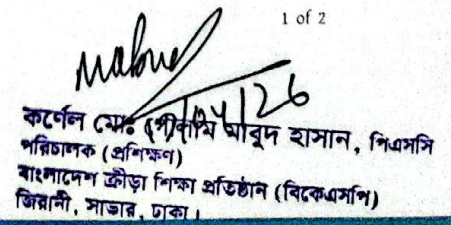 1 of 2
কর্নেল মোঃ হাসান, পিএসসি
পরিচালক (প্রশিক্ষণ)
বাংলাদেশ ক্রীড়া শিক্ষা প্রতিষ্ঠান (বিকেএসপি)
জিরানী, সাভার, ঢাকা।